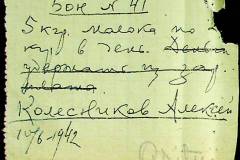 Бон № 41
5 кгр. масла по
кгр в день. Деньги
удержать из зар
платы.
Колесников Алексей
14/6-1942